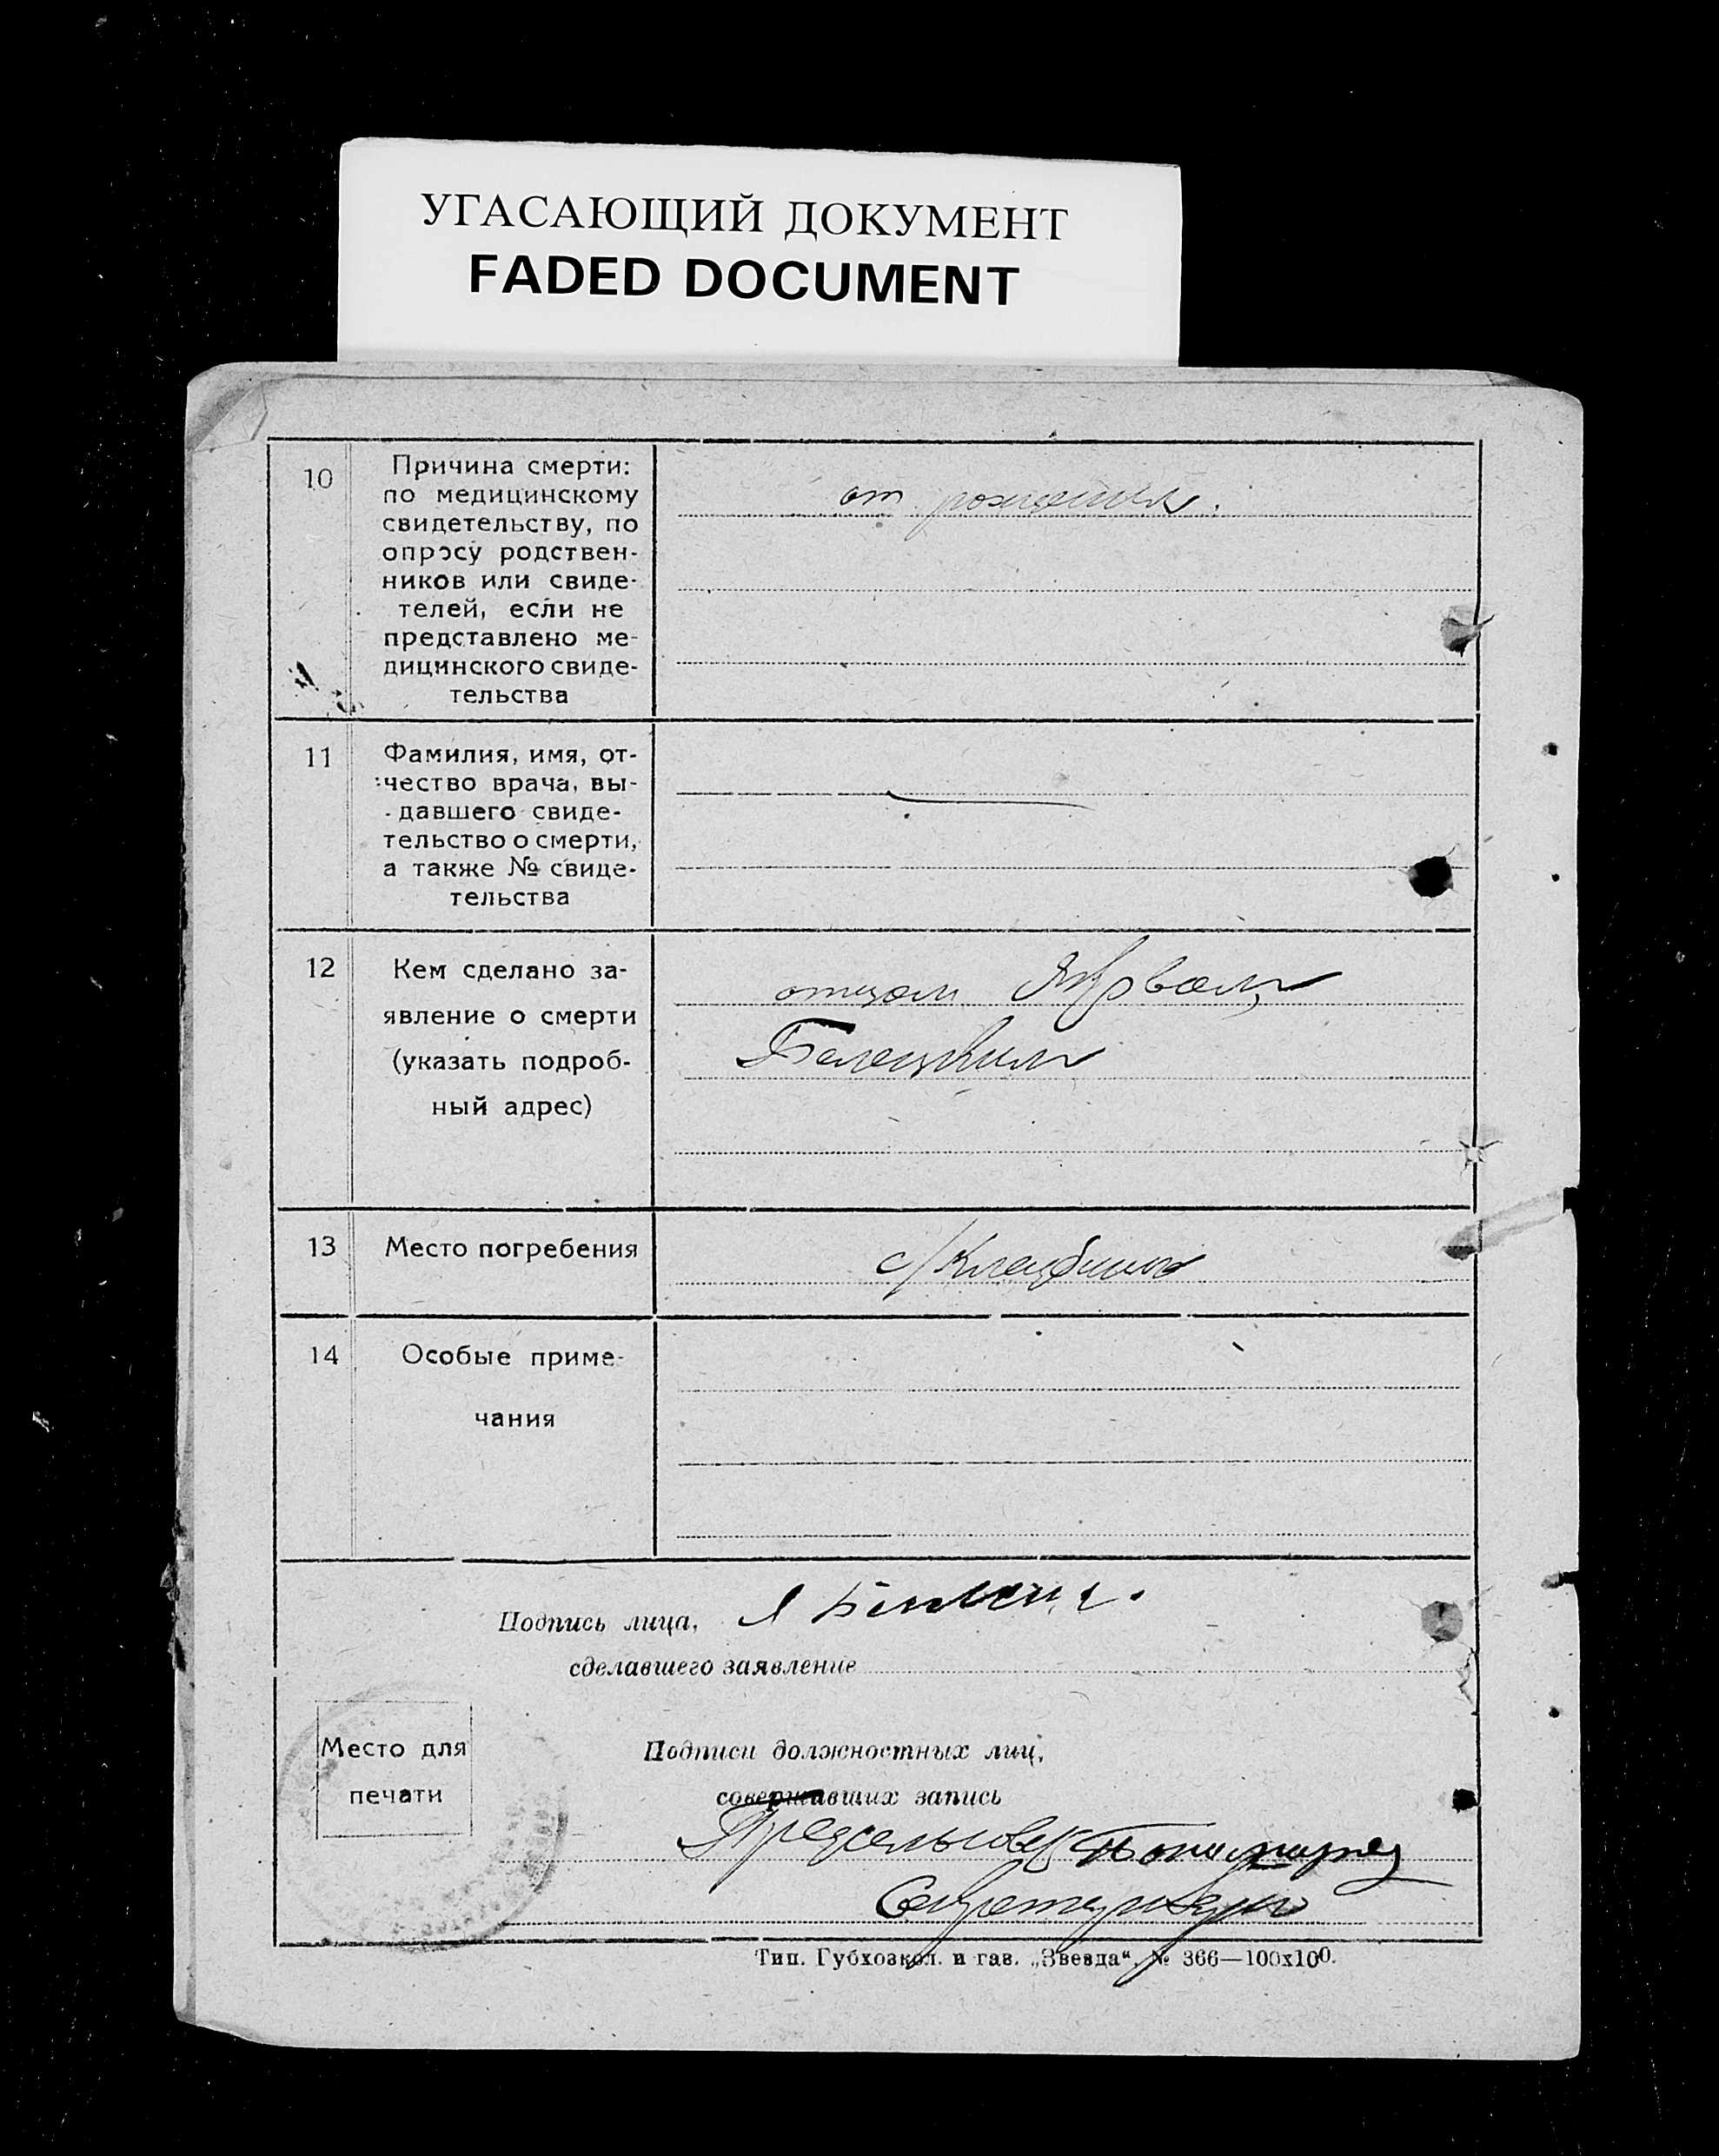 УГАСАЮЩИЙ ДОКУМЕНТ
FADED DOCUMENT
10
Причина смерти:
по медицинскому
свидетельству, по
опросу родствен-
ников или свиде-
телей, если не
представлено ме-
дицинского свиде-
тельства
от рождения.
11
Фамилия, имя, от-
чество врача, вы-
давшего свиде-
тельство о смерти,
а также № свиде-
тельства
12
Кем сделано за-
явление о смерти
(указать подроб-
ный адрес)
отцом
Белецким
13
Место погребения
с/кладбище
14
Особые приме-
чания
Подпись лица,
сделавшего заявление
Место для
печати
Подписи должностных лиц,
совершавших запись
Предсельсовет
Секретарь
Тип. Губхозкол. и газ. „Звезда“. № 366—100х100.